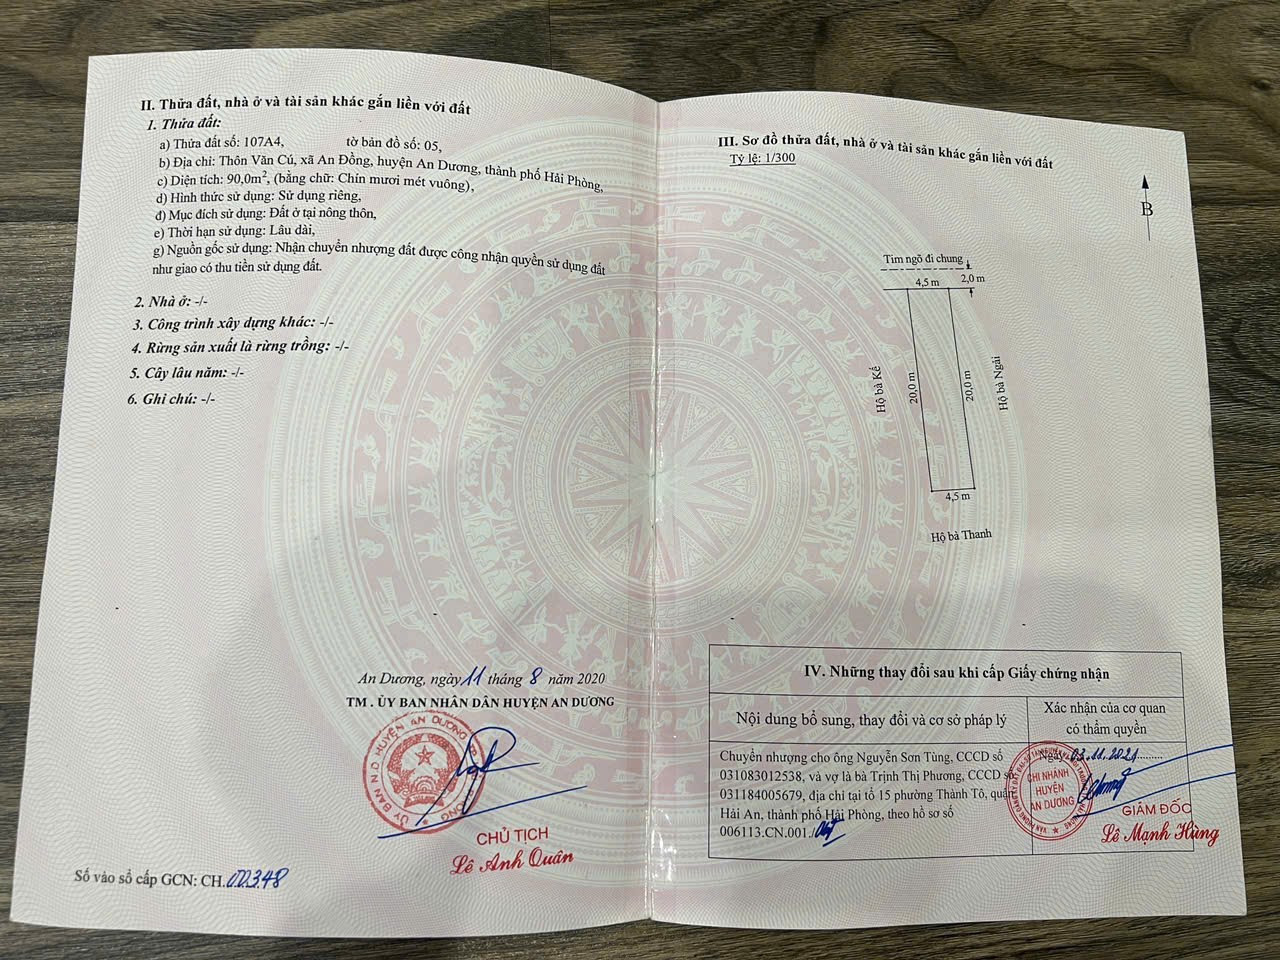 II. Thửa đất, nhà ở và tài sản khác gắn liền với đất
1. Thửa đất:
a) Thửa đất số: 107A4, tờ bản đồ số: 05,
b) Địa chỉ: Thôn Văn Cú, xã An Đồng, huyện An Dương, thành phố Hải Phòng,
c) Diện tích: 90,0m², (bằng chữ: Chín mươi mét vuông),
d) Hình thức sử dụng: Sử dụng riêng,
đ) Mục đích sử dụng: Đất ở tại nông thôn,
e) Thời hạn sử dụng: Lâu dài,
g) Nguồn gốc sử dụng: Nhận chuyển nhượng đất được công nhận quyền sử dụng đất
như giao có thu tiền sử dụng đất.
2. Nhà ở: -/-
3. Công trình xây dựng khác: -/-
4. Rừng sản xuất là rừng trồng: -/-
5. Cây lâu năm: -/-
6. Ghi chú: -/-
An Dương, ngày 11 tháng 8 năm 2020
TM . ỦY BAN NHÂN DÂN HUYỆN AN DƯƠNG
ỦY BAN N.D HUYỆN AN DƯƠNG
CHỦ TỊCH
Lê Anh Quân
Số vào sổ cấp GCN: CH.00348
III. Sơ đồ thửa đất, nhà ở và tài sản khác gắn liền với đất
Tỷ lệ: 1/300
B
Tim ngõ đi chung
4,5 m 2,0 m
Hộ bà Kế
20,0 m
20,0 m
Hộ bà Ngải
4,5 m
Hộ bà Thanh
IV. Những thay đổi sau khi cấp Giấy chứng nhận
Nội dung bổ sung, thay đổi và cơ sở pháp lý
Xác nhận của cơ quan
có thẩm quyền
Chuyển nhượng cho ông Nguyễn Sơn Tùng, CCCD số
031083012538, và vợ là bà Trịnh Thị Phương, CCCD số
031184005679, địa chỉ tại tổ 15 phường Thành Tô, quận
Hải An, thành phố Hải Phòng, theo hồ sơ số
006113.CN.001./.
Ngày 03.11.2021
CHI NHÁNH
HUYỆN
AN DƯƠNG
GIÁM ĐỐC
Lê Mạnh Hùng